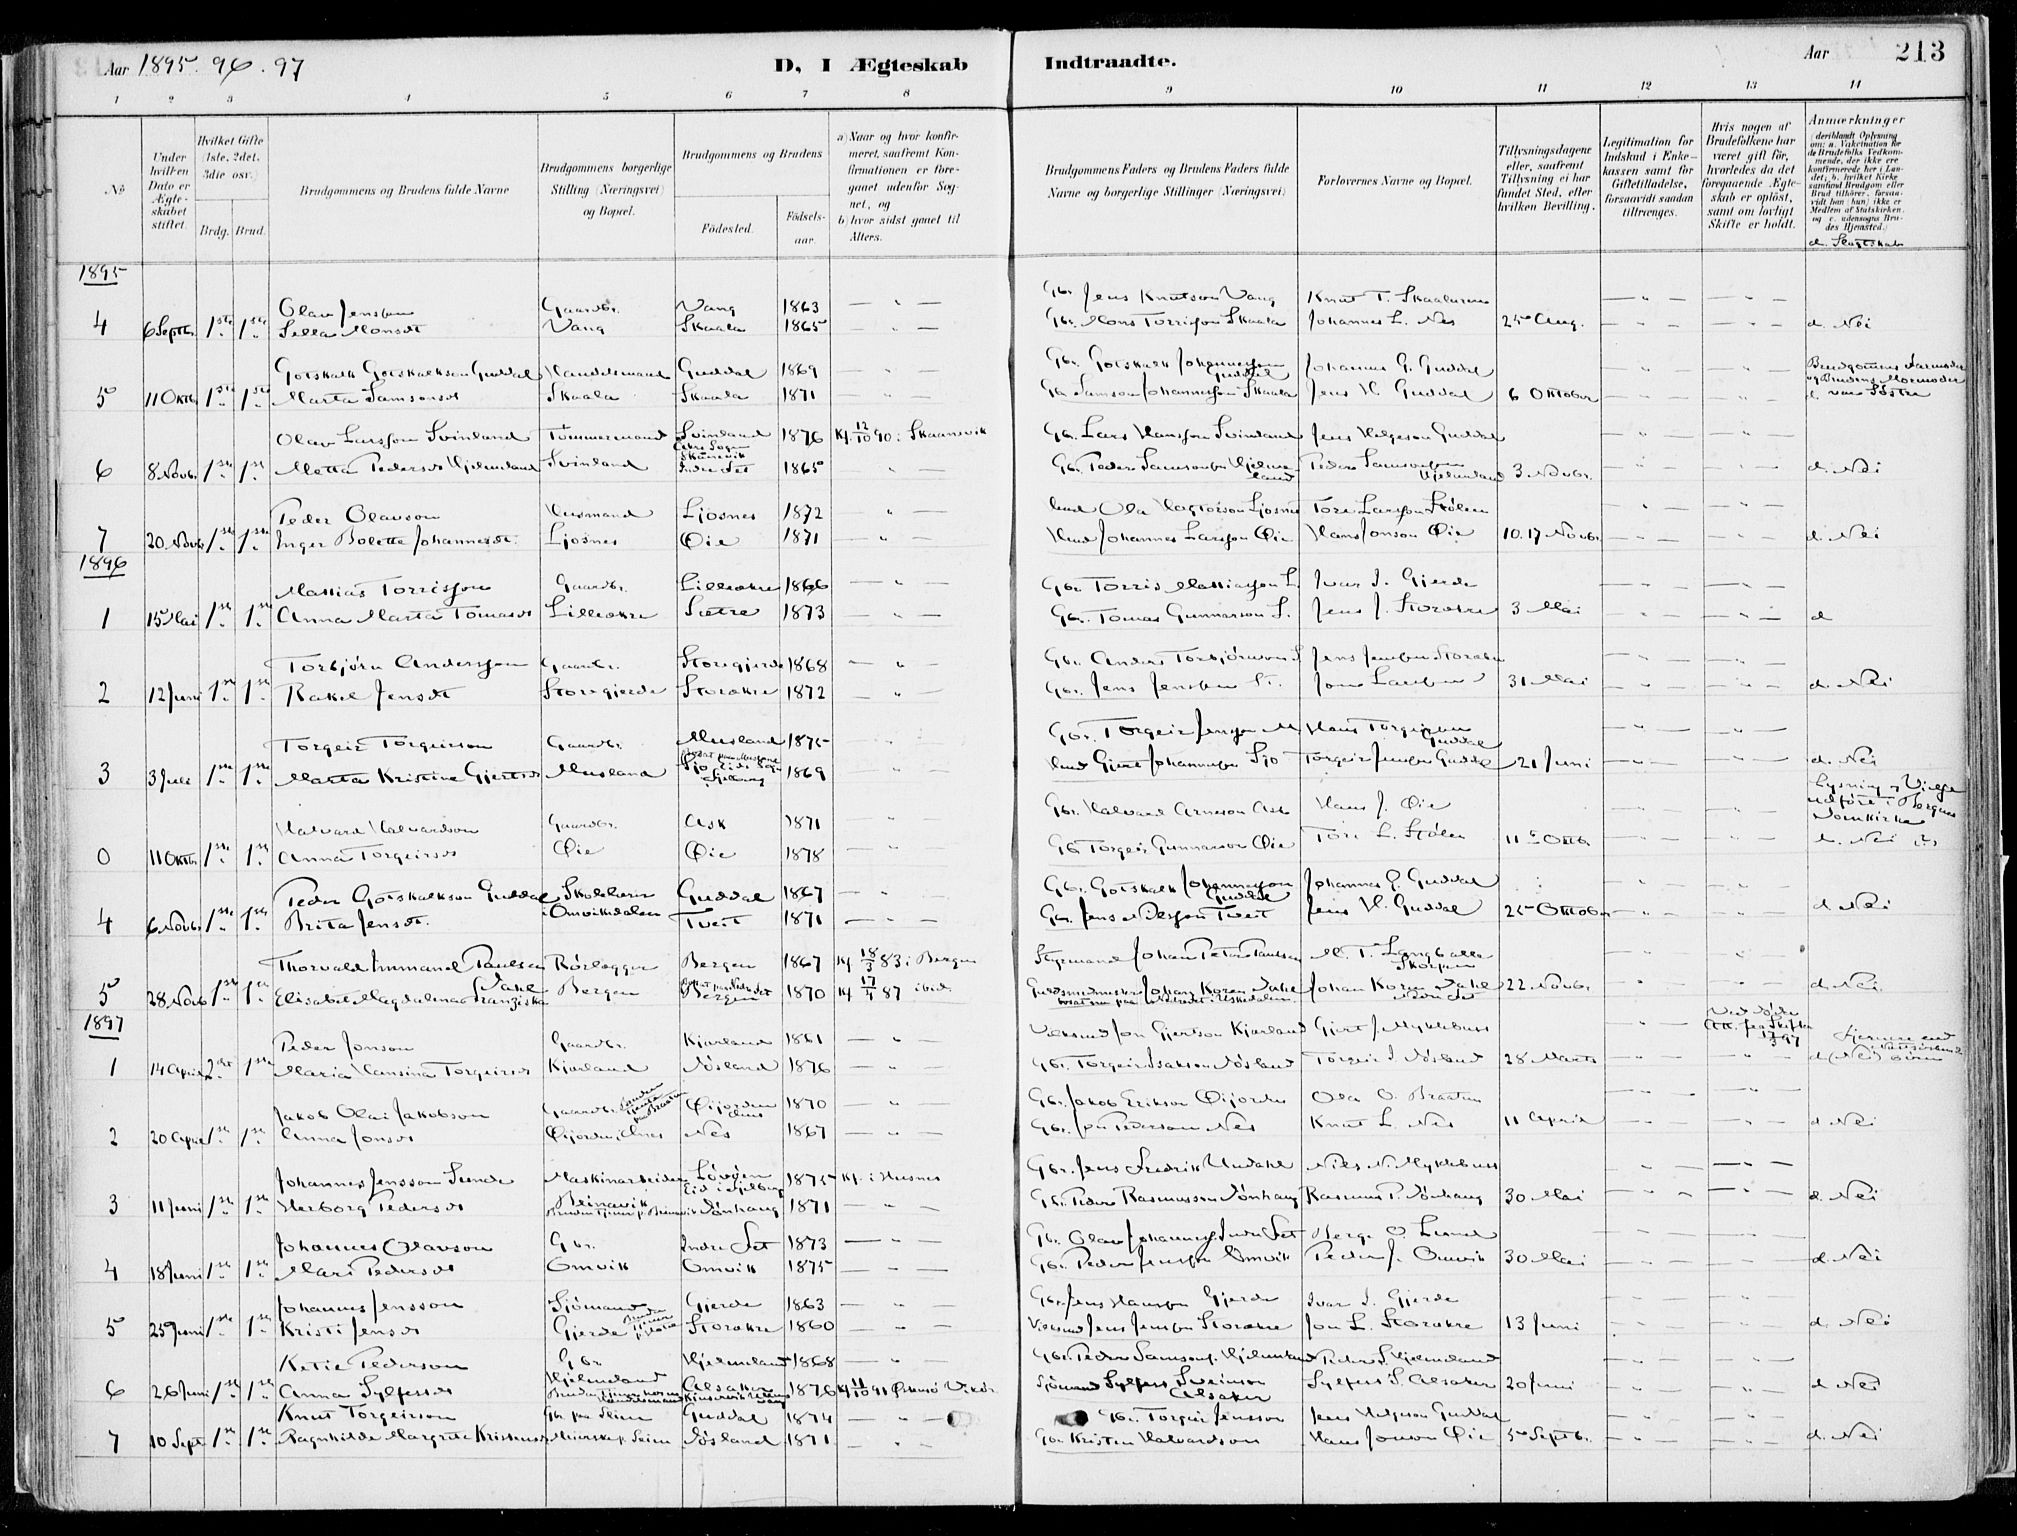 Aar 1895. 96. 97
D, I Ægteskab Indtraadte.
Aar 213
1 2 3 4 5 6 7 8 9 10 11 12 13 14
No
Under hvilken Dato er Ægteskabet stiftet.
Hvilket Gifte (1ste, 2det, 3die osv.)
Brdg. Brud.
Brudgommens og Brudens fulde Navne
Brudgommens borgerlige Stilling (Næringsvei) og Bopæl.
Brudgommens og Brudens
Födested. Födsels-aar.
a) Naar og hvor konfirmeret, saafremt Konfirmationen er foregaaet udenfor Sognet, og
b) hvor sidst gaaet til Alters.
Brudgommens Faders og Brudens Faders fulde Navne og borgerlige Stillinger (Næringsvei)
Forlovernes Navne og Bopæl.
Tillysningsdagene eller, saafremt Tillysning ei har fundet Sted, efter hvilken Bevilling.
Legitimation for Indskud i Enkekassen samt for Giftetilladelse, forsaavidt saadan tiltrænges.
Hvis nogen af Brudefolkene har været gift för, hvorledes da det foregaaende Ægteskab er oplöst, samt om lovligt Skifte er holdt.
Anmærkninger
(deriblandt Oplysning om: a. Vakcination for de Brudefolks Vedkommende, der ikke ere konfirmerede her i Landet; b. hvilket Kirkesamfund Brudgom eller Brud tilhörer, forsaavidt han (hun) ikke er Medlem af Statskirken, og c. udensogns Brudes Hjemsted.)
d. Slægtskab
1895
Olav Jensson Gaardbr. Vang 1863 — " — Gbr. Jens Knutson Vang Knut T. Skaaluren
4 6 Septb. 1ste 1ste Sella Monsdt Vang Skaala 1865 " — Gbr. Mons Torrisson Skaala Johannes L. Nes 25 Aug. d. Nei
Gotskalk Gotskalkson Guddal Handelsmand Guddal 1869 — " — Gbr. Gotskalk Johannesson Guddal Johannes G. Guddal Brudgommens Farmoder
5 11 Oktb. 1ste 1ste Marta Samsonsdt Skaala Skaala 1871 " Gbr Samson Johannesson Skaala Jens H. Guddal 6 Oktober og Brudens Mormoder d. var Søstre
Olav Larsson Svinland Tømmermand Svinland 1876 Kf. 12/10 90 i Skaanevik Gbr. Lars Hansson Svinland Jens Helgeson Guddal
6 8 Novb. 1ste 1ste Metta Pedersdt Hjelmeland Svinland Indre Set 1865 " Gbr. Peder Samsonsen Hjelmeland Peder Samsonsen Hjelmeland 3 Novbr. d. Nei
Peder Olavson Husmand Ljosnes 1872 " — Tore Larsson Stølen
7 20 Novb 1ste 1ste Inger Bolette Johannesdt. Ljosnes Øie 1871 — " — Hmd Johannes Larsson Øie Hans Jonson Øie 10. 17 Novbr. d. Nei
1896
Mattias Torrisson Gaardbr. Lilleøkre 1866 — " — Gbr Torris Mattiasson L. Ivar I. Gjerde
1 15 Mai 1ste 1ste Anna Marta Tomasdt Lilleøkre Sætre 1873 " Gbr. Tomas Gunnarson S. Jens J. Storøkre 3 Mai d
Torbjørn Andersson Gaardbr. Storegjerde 1868 — " — Gbr. Anders Torbjørnson S Jens Jensson Storøkre
2 12 Juni 1ste 1ste Rakel Jensdt Storegjerde Storøkre 1872 — " — Gbr. Jens Jensson St. Jon Larsson 31 Mai d. Nei
Torgeir Torgeirson Gaardbr. Musland 1875 Gbr. Torgeir Jensson M Hans Torgeirson Guddal
3 3 Juli 1ste 1ste Marta Kristine Gjertsdt Musland Sjo, Eids Sogn Fjelberg 1869 " Hmd Gjert Johannesson Sjo Torgeir Jensson Guddal 21 Juni d. Nei
Halvard Halvardson Gaardbr. Ask 1871 " Gbr. Halvard Arneson Ask Hans J. Øie Lysning og Vielse udført i Bergens Domkirke
0 11 Oktb. 1ste 1ste Anna Torgeirsdt Øie Øie 1878 " Gb Torgeir Gunnarson Øie Tore L. Stølen 11te Oktb. d. Nei
Peder Gotskalkson Guddal Skolelærer Guddal 1867 — " Gbr. Gotskalk Johannesson Guddal Johannes G. Guddal
4 6 Novb. 1ste 1ste Brita Jensdt. i Omvikdalen Tveit 1871 — " — Gbr. Jens Nilsson Tveit Jens H. Guddal 25 Oktober d Nei
Thorvald Immanuel Paulsen Rørlægger Bergen 1867 Kf 18/3 83 i Bergen Styrmand Johan Peter Paulsen M. T. Langballe Skorpen
5 28 Novb 1ste 1ste Elisabet Magdalena Franziska Dahl Bergen Bergen 1870 Kf 17/4 87 ibid. Guldsmedmester Johan Koren Dahl Johan Koren Dahl 22 Novbr. d Nei.
1897
Peder Jonson Gaardbr. Kjærland 1861 — " — Jon Gjertson Kjærland Gjert J Myklebust
1 14 April 2det 1ste Maria Hansina Torgeirsdt Kjærland Døsland 1876 " Gbr. Torgeir Isakson Døsland Torgeir I. Døsland 28 Marts d (Nei)
Jakob Olai Jakobson Gaardbr. Øijorden Ølnes 1870 — " — Gbr. Jakob Erikson Øijorden Ola O. Braaten
2 20 April 1ste 1ste Anna Jonsdt Øijorden, Ølnes Nes 1867 — " — Gbr. Jon Pederson Nes Knut L. Nes 11 April d Nei
Johannes Jensson Sunde Maskinarbeider Løvøen Eid i Fjelberg 1875 Kf. i Husnes Gbr. Jens Fredrik Undahl Niels N. Myklebust
3 11 Juni 1ste 1ste Herborg Pedersdt Beinavik Dønhaug 1871 — " — Gbr. Peder Rasmusson Dønhaug Rasmus P. Dønhaug 30 Mai d. Nei
Johannes Olavson Gbr. Indre Set 1873 — " — Gbr. Olav Johanness. Indre Set Berge O. Lund
4 18 Juni 1ste 1ste Mari Pedersdt Omvik Omvik 1875 — " — Gbr. Peder Jensson Omvik Peder J. Omvik 30 Mai d. Nei
Johannes Jensson Sjömand Gjerde 1863 — " — Gbr. Jens Hansson Gjerde Ivar I. Gjerde
5 25 Juni 1ste 1ste Kristi Jensdt Gjerde Storøkre 1860 " Jens Jensson Storøkre Jon L. Storøkre 13 Juni d. Nei
Ketil Pederson Gbr Hjelmeland 1868 — " — Gbr. Peder Samsons. Hjelmeland Peder S. Hjelmeland
6 26 Juni 1ste 1ste Anna Sylfestsdt Hjelmeland Alsaker 1876 Kf 11/10 91 Østensø Vikør Sjömand Sylfest Sveinson Alsaker Sylfest S. Alsaker 20 Juni d Nei
Knut Torgeirson Gbr. paa Seim Guddal 1874 — " — Gbr. Torgeir Jensson Jens Helgeson Guddal
7 10 Sept 1ste 1ste Ragnhilde Margrete Kristensdt Seim Døsland 1871 — " — Gbr Kristen Halvardson Hans Jonson Øie 5 Septb. d. Nei